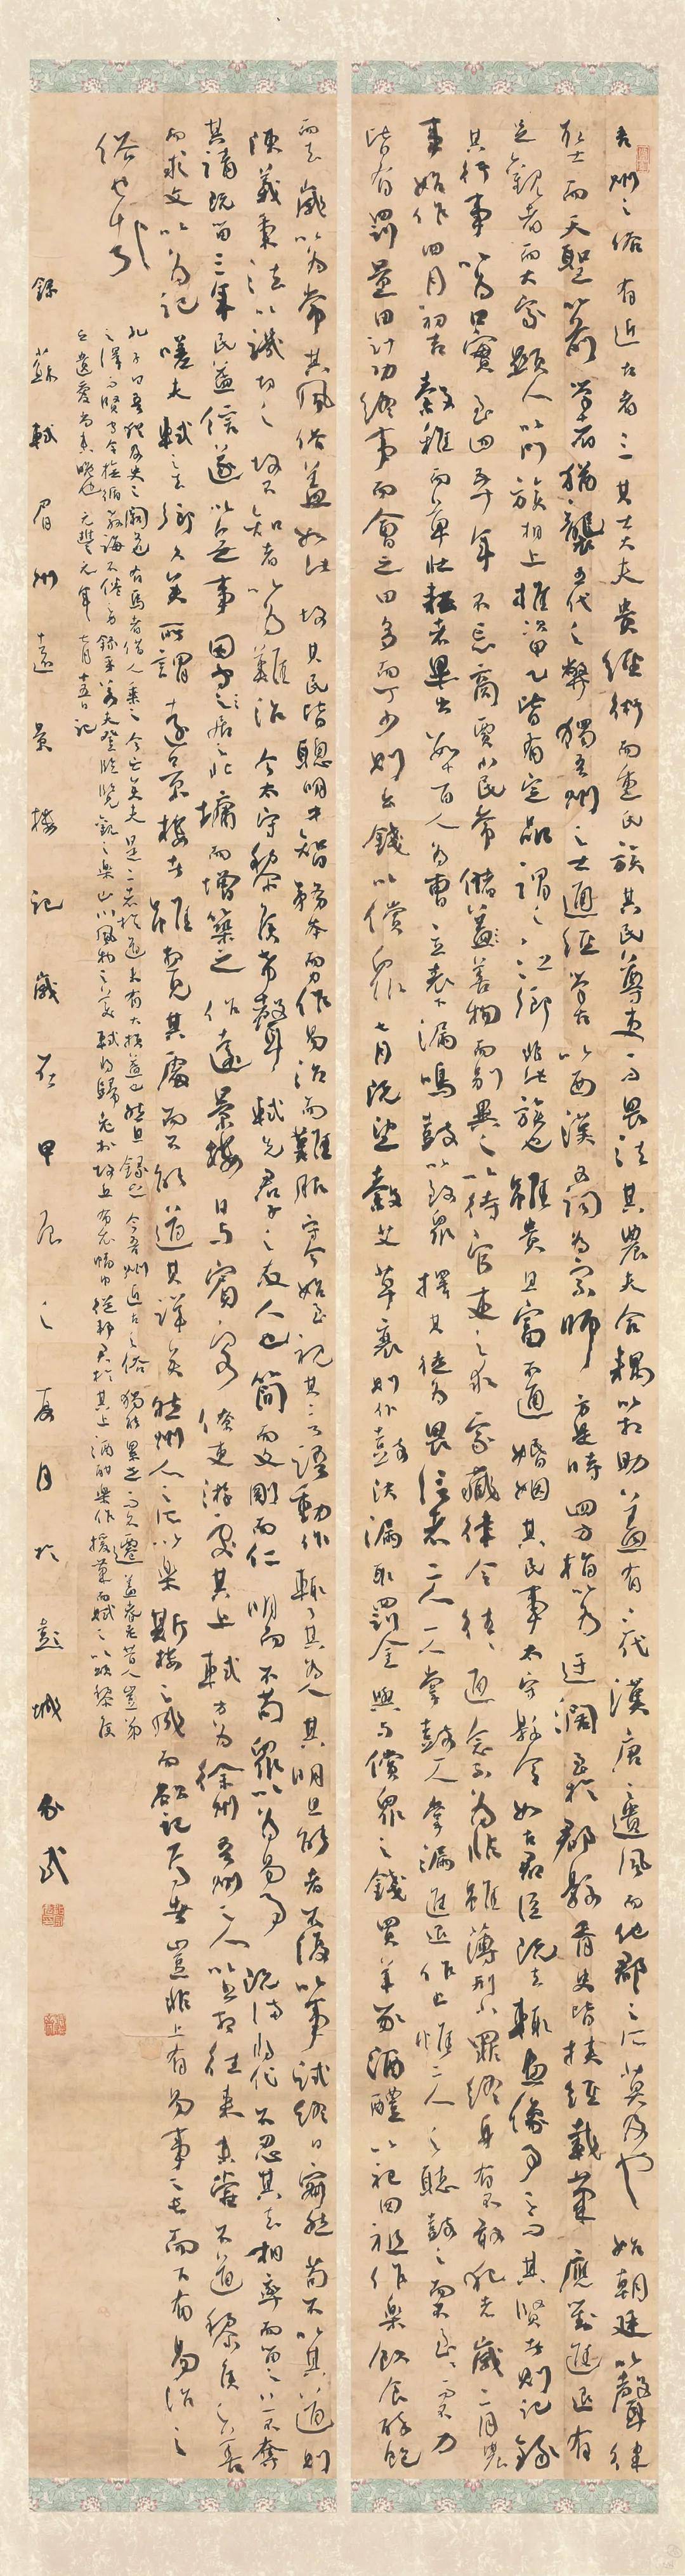 吾州之俗有近古者三其士大夫貴經術而重氏族其民尊吏而畏法其農夫合耦以相助蓋有三代漢唐之遺風而他郡之所莫及也始朝廷以聲律
取士而天聖以前學者猶襲五代之弊獨吾州之士通經學古以西漢文詞為宗師方是時四方指以為迂闊至於郡縣胥史皆挾經載筆應對進退有
足觀者而大家顯人以門族相上推次甲乙皆有定品謂之江鄉非此族也雖貴且富不通婚姻其民事太守縣令如古君臣既去輒畫像事之而其賢者則記錄
其行事以為口實至四五十年不忘商賈小民常儲善物而別異之以待官吏之求家藏律令往往通念而不以為非雖薄刑小罪終身有不敢犯者歲二月農
事始作四月初吉穀稚而草壯耘者畢出數十百人為曹立表下漏鳴鼓以致眾擇其徒為畏信者二人一人掌鼓一人掌漏進退作止惟二人之聽鼓之而不至至而不力
皆有罰量田計功終事而會之田多而丁少則出錢以償眾七月既望穀艾草衰則仆鼓決漏取罰金與償眾之錢買羊豕酒醴以祀田祖作樂飲食醉飽
而去歲以為常其風俗蓋如此故其民皆聰明才智務本而力作易治而難服守令始至視其言語動作輒了其為人其明且能者不復以事試終日寂然苟不以其道則
陳義秉法以譏切之故不知者以為難治今太守黎侯希聲軾先君子之友人也簡而文剛而仁明而不苟眾以為易事既滿將代不忍其去相率而留之上不奪
其請既留三年民益信遂以無事因守之居之北墉而增築之作遠景樓日與賓客僚吏游處其上軾方為徐州吾州之人以書相往來未嘗不道黎侯之善
而求文以為記嗟夫軾之去鄉久矣所謂遠景樓者雖想見其處而不能道其詳矣然州人之所以樂斯樓之成而欲記焉者豈非上有易事之長而下有易治之
俗也哉
孔子曰吾猶及史之闕文也有馬者借人乘之今亡矣夫是二者於道未有大損益也然且錄之今吾州近古之俗獨能累世而不遷蓋耆老昔人豈弟
之澤而賢守令撫循教誨不倦之力也可不錄乎若夫登臨覽觀之樂山川風物之美軾將歸老於故丘布衣幅巾從邦君於其上酒酣樂作援筆而賦之以頌黎侯
之遺愛尚未晚也元豐元年七月十五日記
錄蘇軾眉州遠景樓記歲在甲辰之夏月於彭城